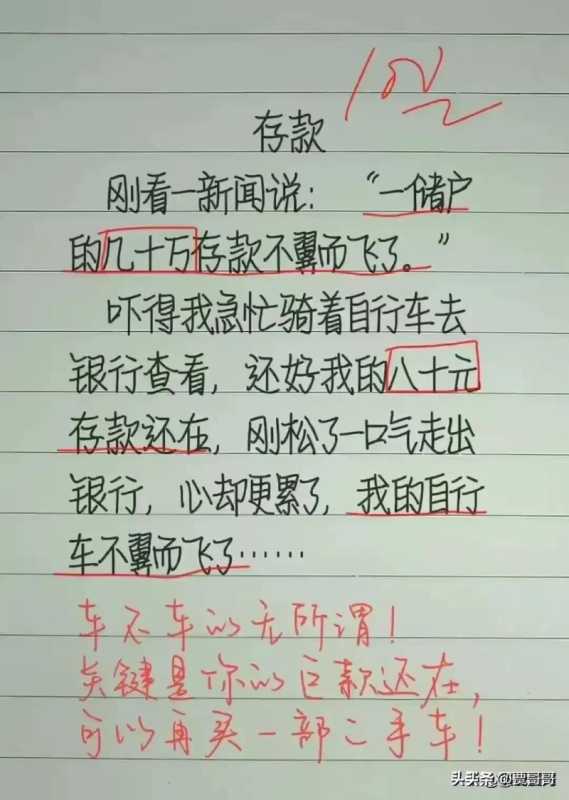 存款
刚看一新闻说：“一储户
的几十万存款不翼而飞了。”
吓得我急忙骑着自行车去
银行查看，还好我的八十元
存款还在，刚松了一口气走出
银行，心却更累了，我的自行
车不翼而飞了……
车不车的无所谓！
关键是你的巨款还在，
可以再买一部二手车！
头条@贾哥哥